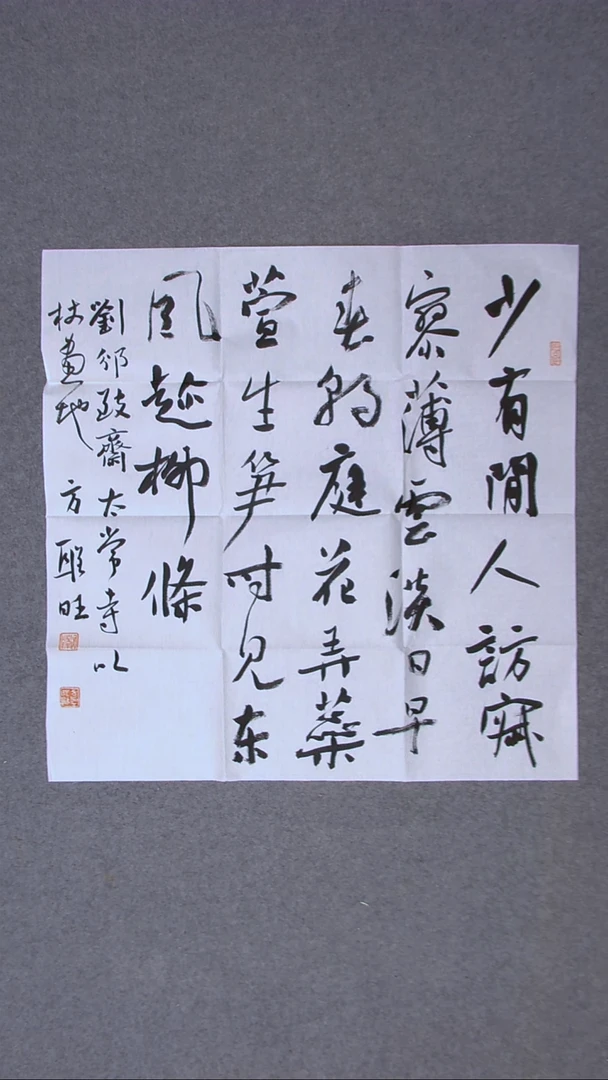 少有閒人訪寂
寥薄雲淡日早
春朝庭花弄蘂
萱生笋时见东
风趁柳條
劉邠致齋太常寺以
杖畫地 方 旺